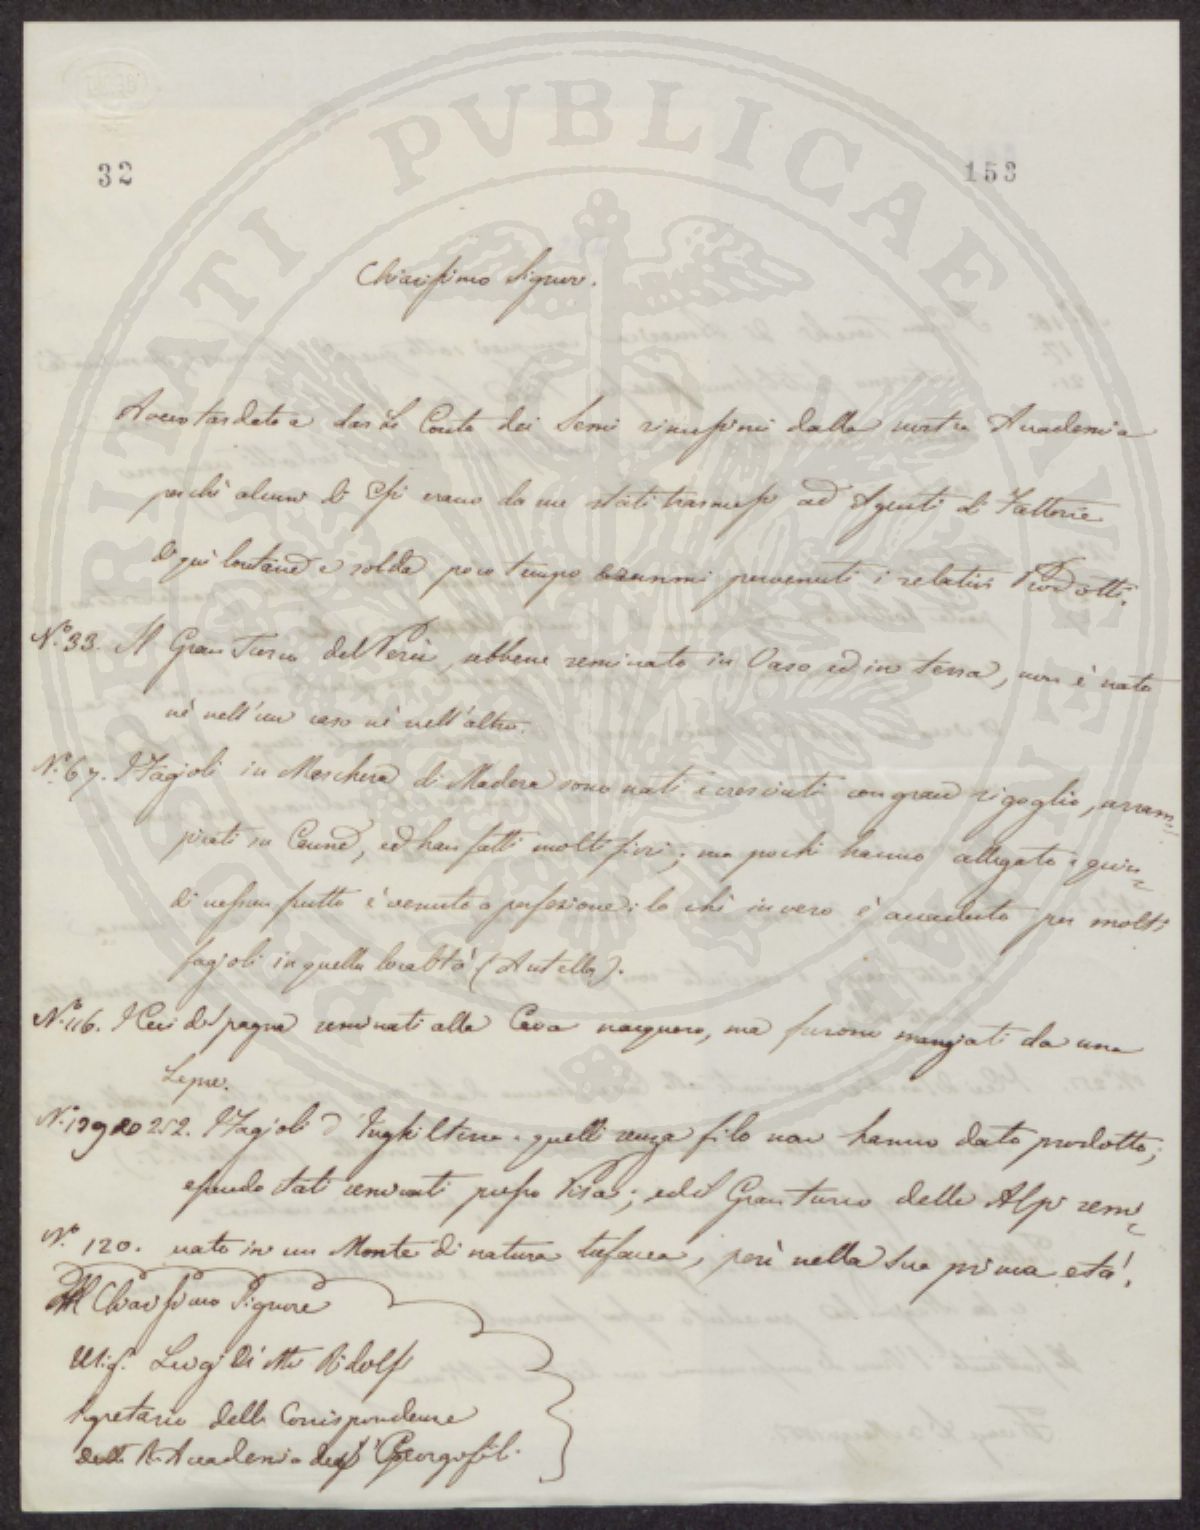 32
153
Chiarissimo Signore.
Avevo tardato a dar Le Conto dei Semi rimessimi dalla vostra Accademia
perchè alcuni di Essi erano da me stati trasmessi ad Agenti di Fattorie
di qui lontane e solo da poco tempo pervenuti i relativi Prodotti.
N.° 33. Il Gran Turco del Perù, sebbene seminato in Vaso ed in terra, non è nato
nè nell'un caso nè nell'altro.
N.° 67. I Fagioli in Maschera di Madera sono nati e cresciuti con gran rigoglio, arram=
picati su Canne, ed han fatti molti fiori; ma pochi hanno allegato e quin=
di nessun frutto è venuto a perfezione; lo chè in vero è accaduto per molti
fagioli in quella località (Antella).
N.° 116. I Ceci di Spagna seminati alla Cava nacquero, ma furono mangiati da una
Lepre.
N.° 252. I Fagioli d'Inghilterra e quelli senza filo non hanno dato prodotto;
essendo stati seminati presso Pisa; ed il Gran turco delle Alpi semi=
N.° 120. nato in un Monte di natura tufacea, perì nella sua prima età.
Al Chiarissimo Signore
Luigi Ridolfi
Segretario delle Corrispondenze
della R. Accademia degli Georgofili.
PVBLICAE